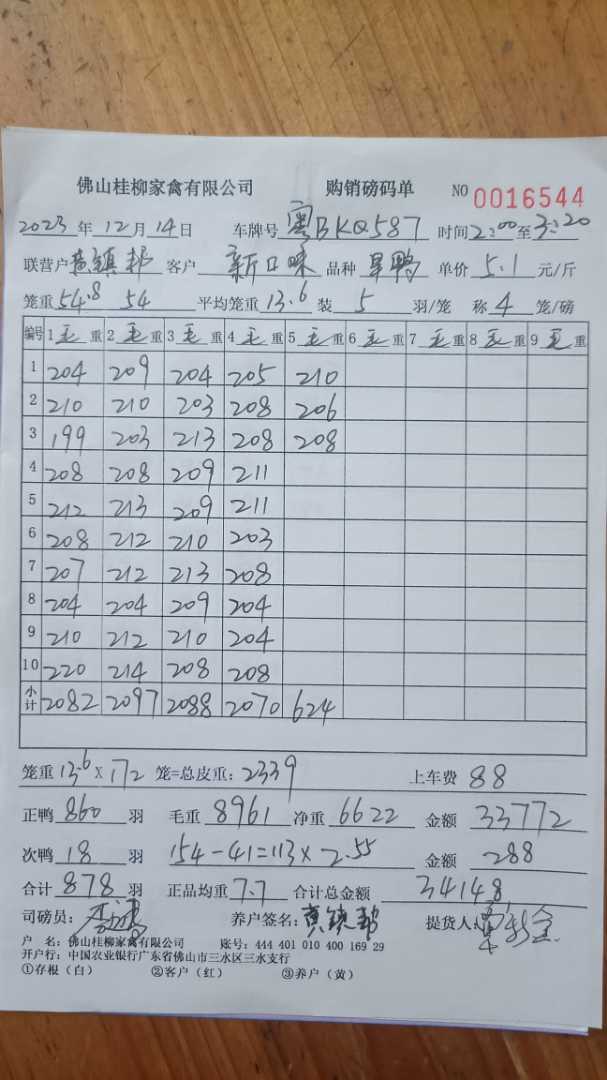 佛山桂柳家禽有限公司 购销磅码单 NO 0016544
2023年12月14日 车牌号 粤BKQ587 时间2:00至3:20
联营户黄镇邦 客户 新口味 品种 旱鸭 单价 5.1 元/斤
笼重54.8 54 平均笼重13.6 装 5 羽/笼 称 4 笼/磅
编号 1毛重 2毛重 3毛重 4毛重 5毛重 6毛重 7毛重 8毛重 9毛重
1 204 209 204 205 210
2 210 210 203 208 206
3 199 203 213 208 208
4 208 208 209 211
5 212 213 209 211
6 208 212 210 203
7 207 212 213 208
8 204 204 209 204
9 210 212 210 204
10 220 214 208 208
小计 2082 2097 2088 2070 624
笼重 13.6 X 172 笼=总皮重:2339 上车费 88
正鸭 860 羽 毛重 8961 净重 6622 金额 33772
次鸭 18 羽 154-41=113×2.55 金额 288
合计 878 羽 正品均重 7.7 合计总金额 34148
司磅员: 养户签名:黄镇邦 提货人:
户 名:佛山桂柳家禽有限公司 账号:444 401 010 400 169 29
开户行:中国农业银行广东省佛山市三水区三水支行
①存根(白) ②客户(红) ③养户(黄)